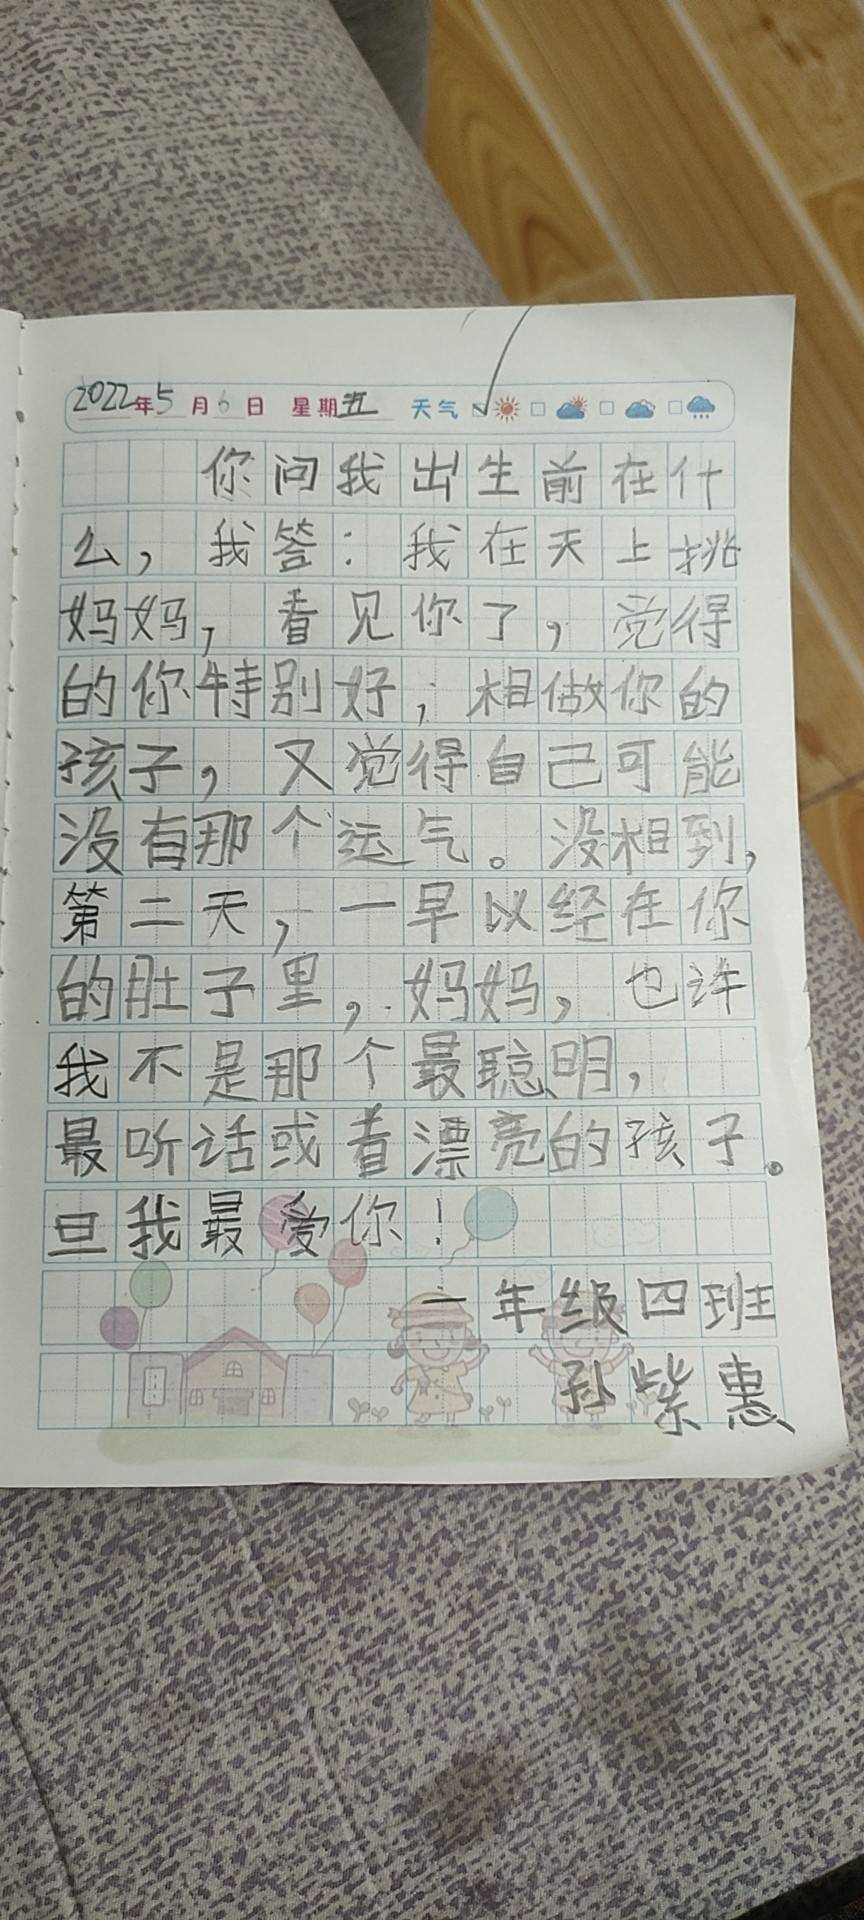 2022年5月6日 星期五 天气
你问我出生前在什
么，我答：我在天上挑
妈妈，看见你了，觉得
的你特别好，相做你的
孩子，又觉得自己可能
没有那个运气。没相到，
第二天，一早以经在你
的肚子里，妈妈，也许
我不是那个最聪明，
最听话或者漂亮的孩子。
旦我最爱你！
一年级四班
孙紫惠